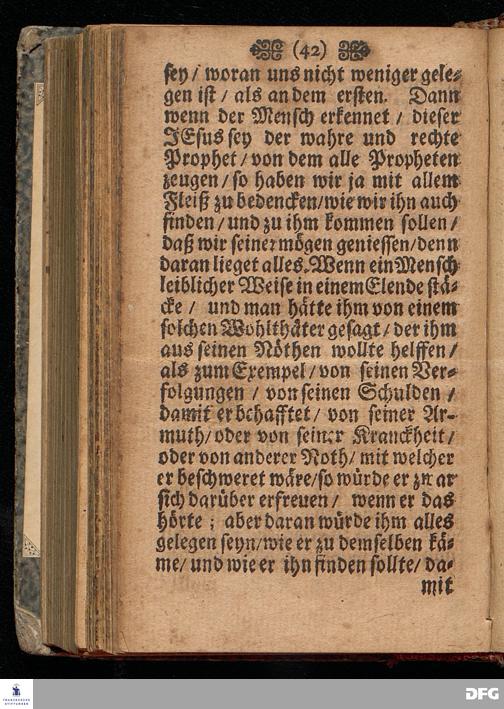 (42)
sey / woran uns nicht weniger gele⸗
gen ist / als an dem ersten. Dann
wenn der Mensch erkennet / dieser
JEsus sey der wahre und rechte
Prophet / von dem alle Propheten
zeugen / so haben wir ja mit allem
Fleiß zu bedencken / wie wir ihn auch
finden / und zu ihm kommen sollen /
daß wir seiner mögen geniessen / denn
daran lieget alles. Wenn ein Mensch
leiblicher Weise in einem Elende stä⸗
cke / und man hätte ihm von einem
solchen Wohlthäter gesagt / der ihm
aus seinen Nöthen wollte helffen /
als zum Exempel / von seinen Ver⸗
folgungen / von seinen Schulden /
damit er behafftet / von seiner Ar⸗
muth / oder von seiner Kranckheit /
oder von anderer Noth / mit welcher
er beschweret wäre / so würde er zwar
sich darüber erfreuen / wenn er das
hörte ; aber daran würde ihm alles
gelegen seyn / wie er zu demselben kä⸗
me / und wie er ihn finden sollte / da⸗
mit
FRANCKESCHE
STIFTUNGEN
DFG